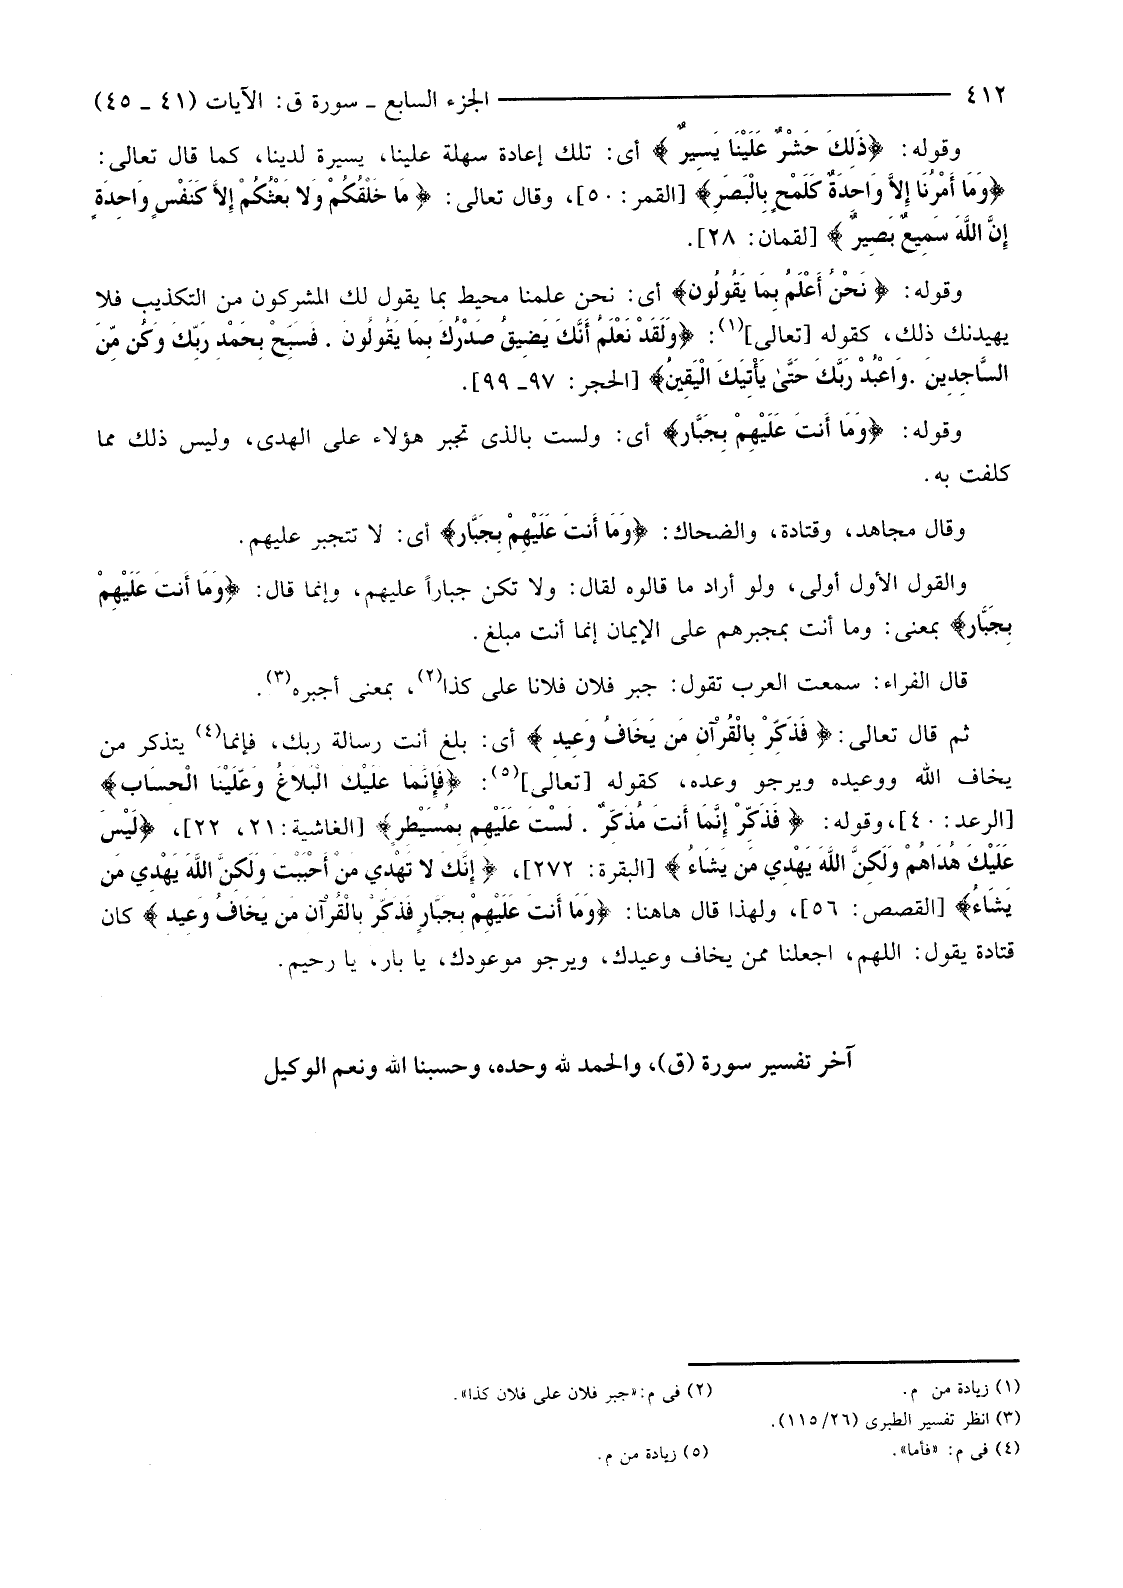 ٤١٢ الجزء السابع ـ سورة ق: الآيات (٤١ ـ ٤٥)
وقوله: ﴿ذَلِكَ حَشْرٌ عَلَيْنَا يَسِيرٌ﴾ أى: تلك إعادة سهلة علينا، يسيرة لدينا، كما قال تعالى:
﴿وَمَا أَمْرُنَا إِلاَّ وَاحِدَةٌ كَلَمْحٍ بِالْبَصَرِ﴾ [القمر: ٥٠]، وقال تعالى: ﴿مَا خَلْقُكُمْ وَلا بَعْثُكُمْ إِلاَّ كَنَفْسٍ وَاحِدَةٍ
إِنَّ اللَّهَ سَمِيعٌ بَصِيرٌ﴾ [لقمان: ٢٨].
وقوله: ﴿نَحْنُ أَعْلَمُ بِمَا يَقُولُونَ﴾ أى: نحن علمنا محيط بما يقول لك المشركون من التكذيب فلا
يهيدنك ذلك، كقوله [تعالى](١): ﴿وَلَقَدْ نَعْلَمُ أَنَّكَ يَضِيقُ صَدْرُكَ بِمَا يَقُولُونَ . فَسَبِّحْ بِحَمْدِ رَبِّكَ وَكُن مِّنَ
السَّاجِدِينَ . وَاعْبُدْ رَبَّكَ حَتَّىٰ يَأْتِيَكَ الْيَقِينُ﴾ [الحجر: ٩٧ـ ٩٩].
وقوله: ﴿وَمَا أَنتَ عَلَيْهِمْ بِجَبَّارٍ﴾ أى: ولست بالذى تجبر هؤلاء على الهدى، وليس ذلك مما
كلفت به.
وقال مجاهد، وقتادة، والضحاك: ﴿وَمَا أَنتَ عَلَيْهِمْ بِجَبَّارٍ﴾ أى: لا تتجبر عليهم.
والقول الأول أولى، ولو أراد ما قالوه لقال: ولا تكن جباراً عليهم، وإنما قال: ﴿وَمَا أَنتَ عَلَيْهِمْ
بِجَبَّارٍ﴾ بمعنى: وما أنت بمجبرهم على الإيمان إنما أنت مبلغ.
قال الفراء: سمعت العرب تقول: جبر فلان فلانا على كذا(٢)، بمعنى أجبره(٣).
ثم قال تعالى: ﴿فَذَكِّرْ بِالْقُرْآنِ مَن يَخَافُ وَعِيدِ﴾ أى: بلغ أنت رسالة ربك، فإنما(٤) يتذكر من
يخاف الله ووعيده ويرجو وعده، كقوله [تعالى](٥): ﴿فَإِنَّمَا عَلَيْكَ الْبَلاغُ وَعَلَيْنَا الْحِسَابُ﴾
[الرعد: ٤٠]، وقوله: ﴿فَذَكِّرْ إِنَّمَا أَنتَ مُذَكِّرٌ . لَسْتَ عَلَيْهِم بِمُسَيْطِرٍ﴾ [الغاشية: ٢١، ٢٢]، ﴿لَيْسَ
عَلَيْكَ هُدَاهُمْ وَلَكِنَّ اللَّهَ يَهْدِي مَن يَشَاءُ﴾ [البقرة: ٢٧٢]، ﴿إِنَّكَ لا تَهْدِي مَنْ أَحْبَبْتَ وَلَكِنَّ اللَّهَ يَهْدِي مَن
يَشَاءُ﴾ [القصص: ٥٦]، ولهذا قال هاهنا: ﴿وَمَا أَنتَ عَلَيْهِمْ بِجَبَّارٍ فَذَكِّرْ بِالْقُرْآنِ مَن يَخَافُ وَعِيدِ﴾ كان
قتادة يقول: اللهم، اجعلنا ممن يخاف وعيدك، ويرجو موعودك، يا بار، يا رحيم.
آخر تفسير سورة (ق)، والحمد لله وحده، وحسبنا الله ونعم الوكيل
(١) زيادة من م. (٢) فى م: «جبر فلان على فلان كذا».
(٣) انظر تفسير الطبرى (٢٦/ ١١٥).
(٤) فى م: «فأما». (٥) زيادة من م.